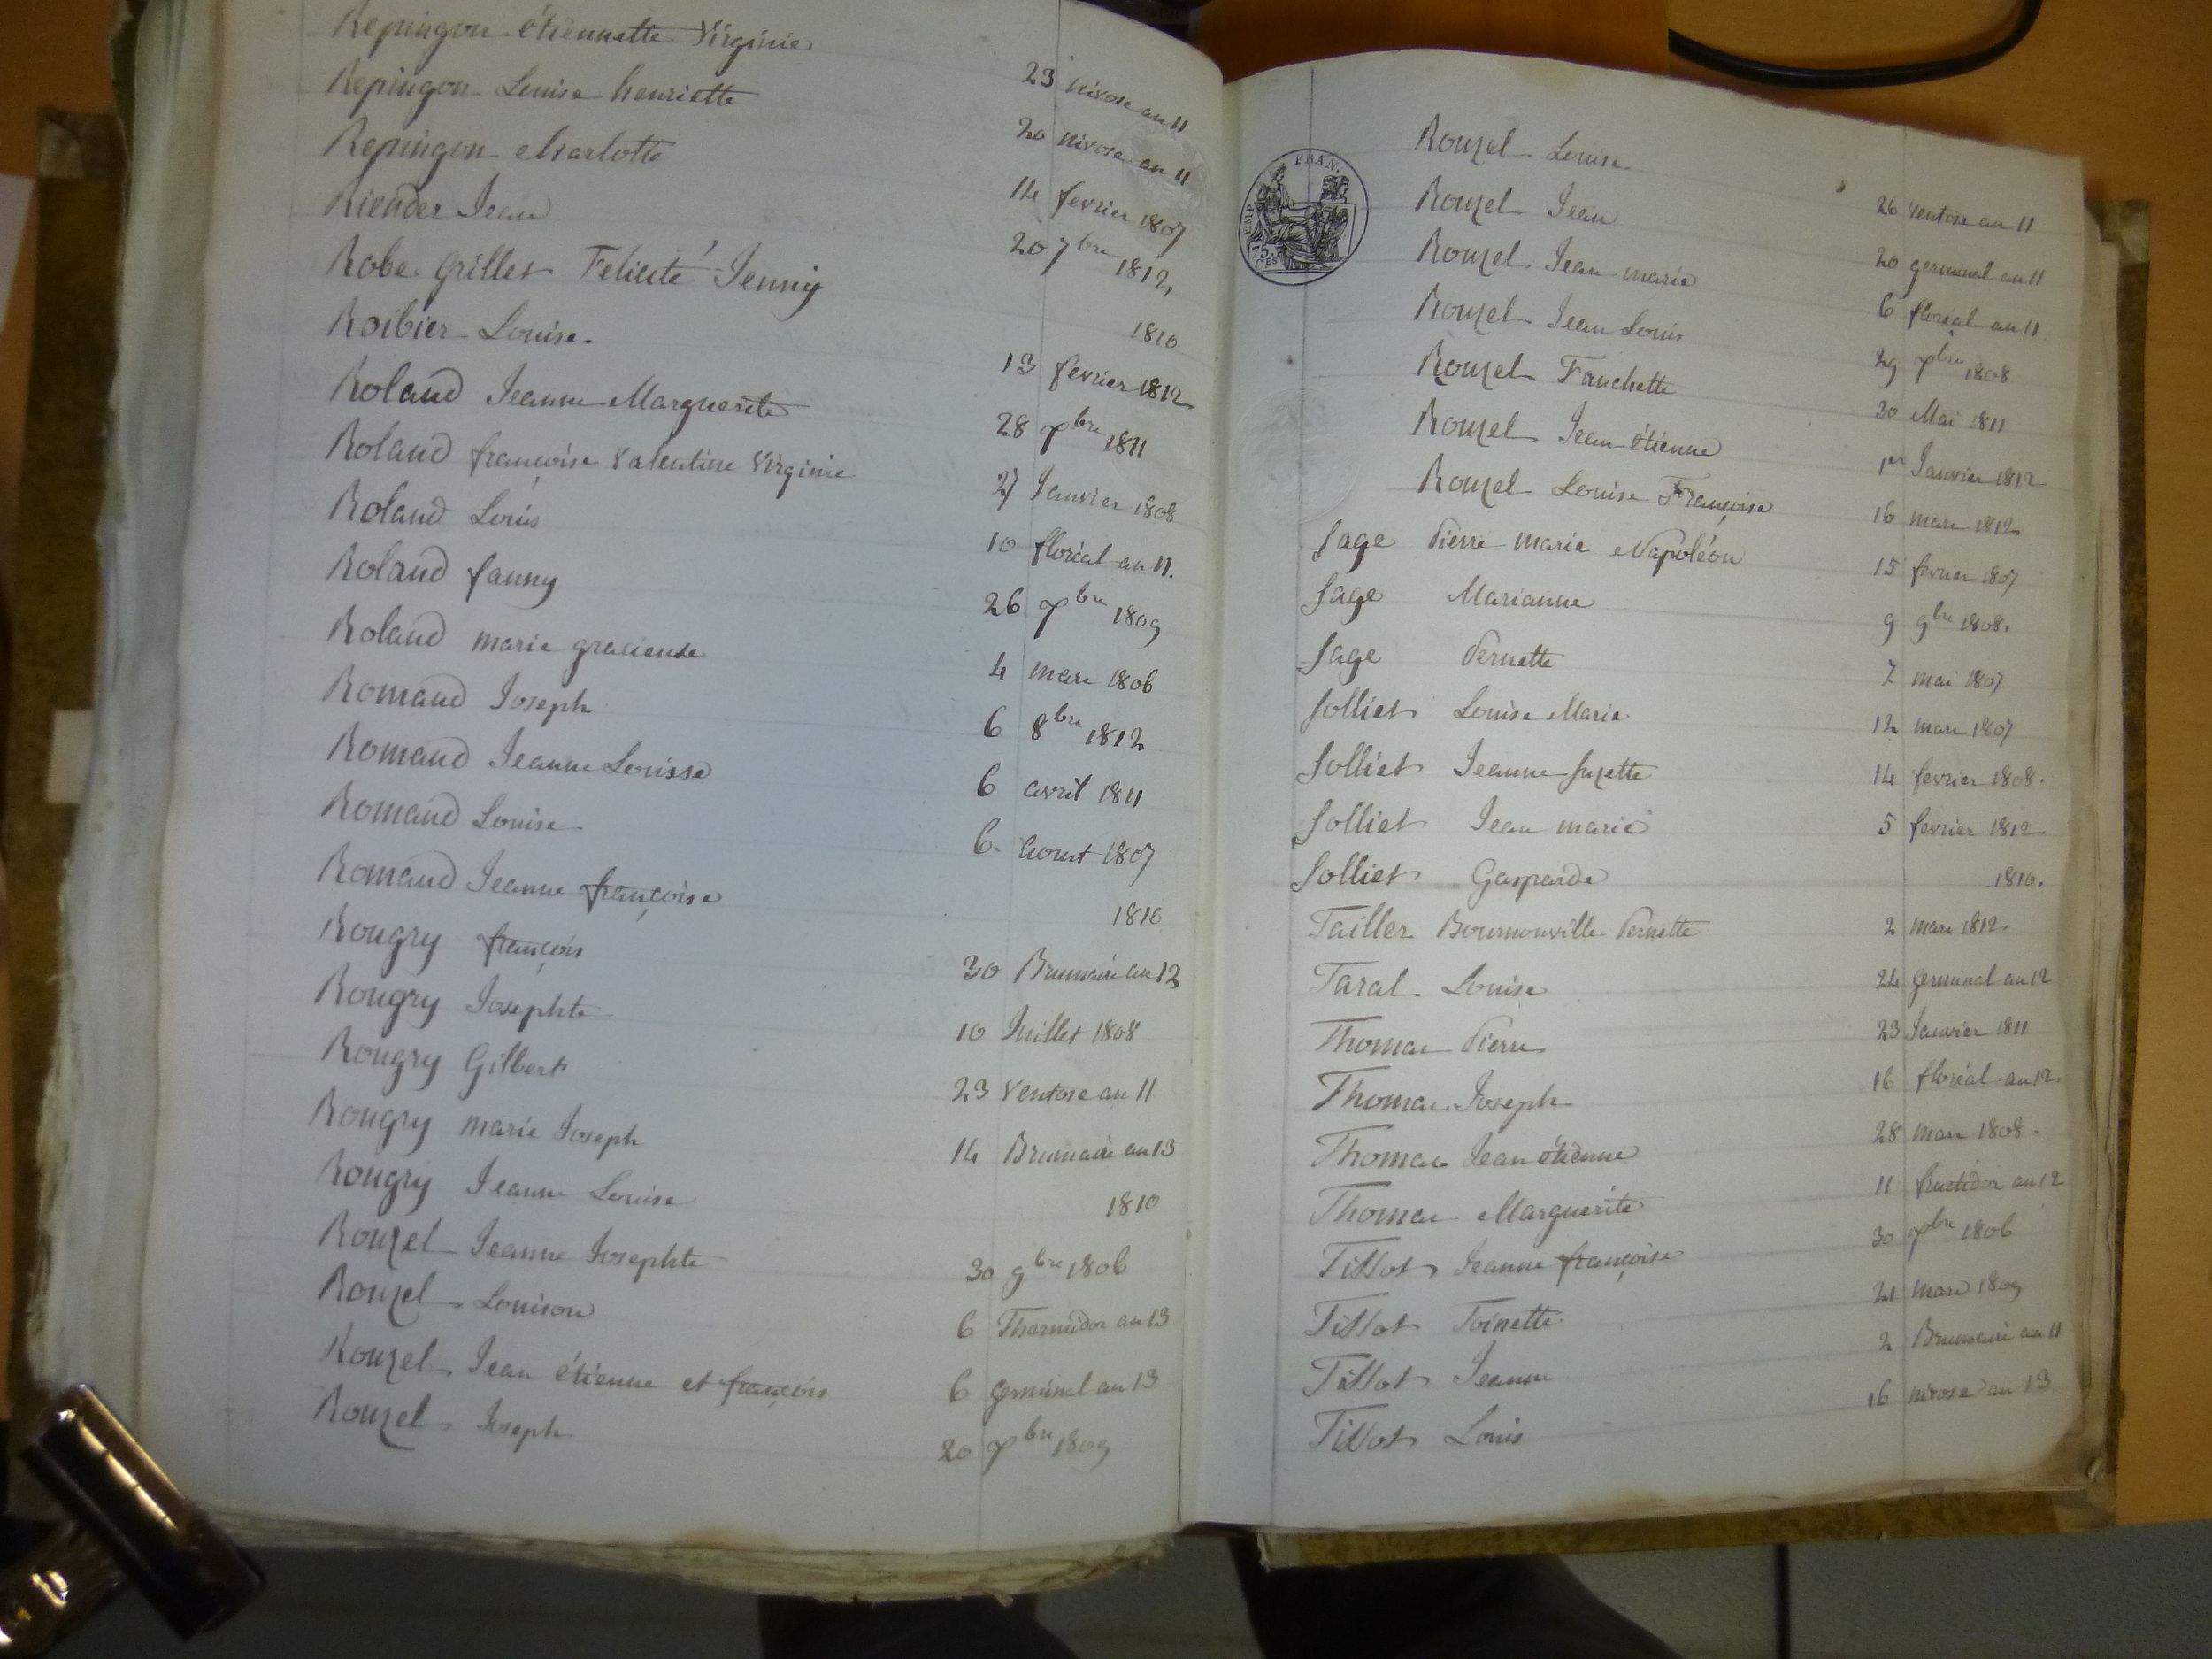 Repingon étiennette Virginie
Repingon Louise henriette 23 nivose an 11
Repingon charlotte 20 nivose an 11
Riender Jean 14 fevrier 1807
Robe Grillet Felicité Jenny 20 7bre 1812
Roibier Louise. 1810
Roland Jeanne Marguerite 13 fevrier 1812
Roland françoise Valentine Virginie 28 Xbre 1811
Roland Louis 27 Janvier 1808
Roland fanny 10 floréal an 11.
Roland marie gracieuse 26 Xbre 1809
Romand Joseph 4 mars 1806
Romand Jeanne Louisse 6 8bre 1812
Romand Louise 6 avril 1811
Romand Jeanne françoise 6. Aoust 1807
Rougry françois 1810
Rougry Josephte 30 Brumaire an 12
Rougry Gilbert 10 Juillet 1808
Rougry marie Joseph 23 Ventose an 11
Rougry Jeanne Louise 14 Brumaire an 13
Rouzel Jeanne Josephte 1810
Rouzel Louison 30 9bre 1806
Rouzel Jean étienne et françois 6 Thermidor an 13
Rouzel Joseph 6 germinal an 13
20 Xbre 1809
FRAN.
EMP.
75. CES
Rouzel Louise
Rouzel Jean 26 Ventose an 11
Rouzel Jean marie 20 germinal an 11
Rouzel Jean Louis 6 floréal an 11
Rouzel Fanchette 29 Xbre 1808
Rouzel Jean étienne 30 Mai 1811
Rouzel Louise Françoise 1er Janvier 1812
Sage Pierre marie Napoléon 16 mars 1812
Sage Marianne 15 fevrier 1807
Sage Pernette 9 9bre 1808.
Solliet Louise Marie 7 mai 1807
Solliet Jeanne Suzette 12 mars 1807
Solliet Jean marie 14 fevrier 1808.
Solliet Gasparde 5 fevrier 1812
Tailler Bournonville Pernette 1810.
Taral Louise 2 mars 1812.
Thomas Pierre 24 germinal an 12
Thomas Joseph 23 Janvier 1811
Thomas Jean étienne 16 floréal an 12
Thomas Marguerite 28 mars 1808.
Tissot Jeanne françoise 11 fructidor an 12
Tissot Toinette 30 Xbre 1806
Tissot Jeanne 21 mars 1809
Tissot Louis 2 Brumaire an 11
16 nivose an 13